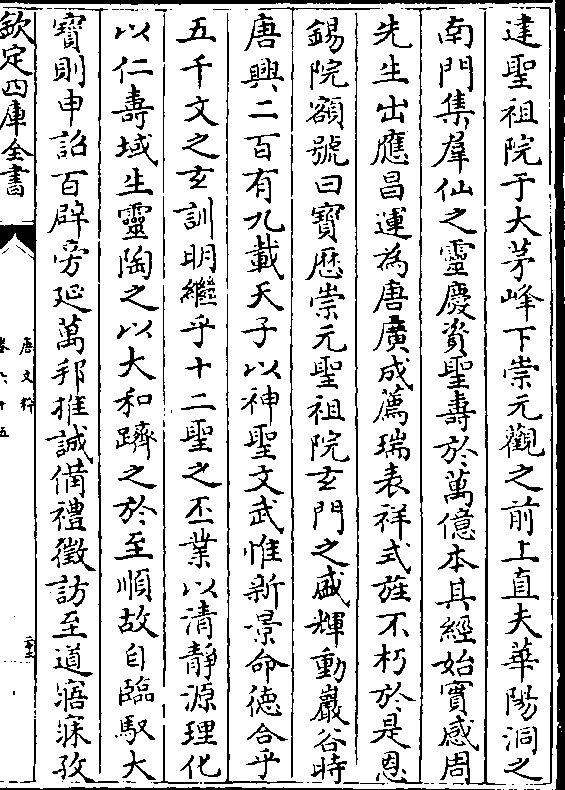 建聖祖院于大茅峰下崇元觀之前上直夫華陽洞之
南門集羣仙之靈慶資聖壽於萬億本其經始實感周
先生出應昌運為唐廣成薦瑞表祥式旌不朽於是恩
錫院額號曰寶歴崇元聖祖院玄門之盛輝動巖谷時
唐興二百有九載天子以神聖文武惟新景命德合乎
五千文之玄訓明繼乎十二聖之丕業以清靜源理化
以仁壽域生靈陶之以大和躋之於至順故自臨馭大
寶則申詔百辟旁延萬邦推誠備禮徵訪至道寤寐孜
欽定四庫全書
唐文粹
卷六十五